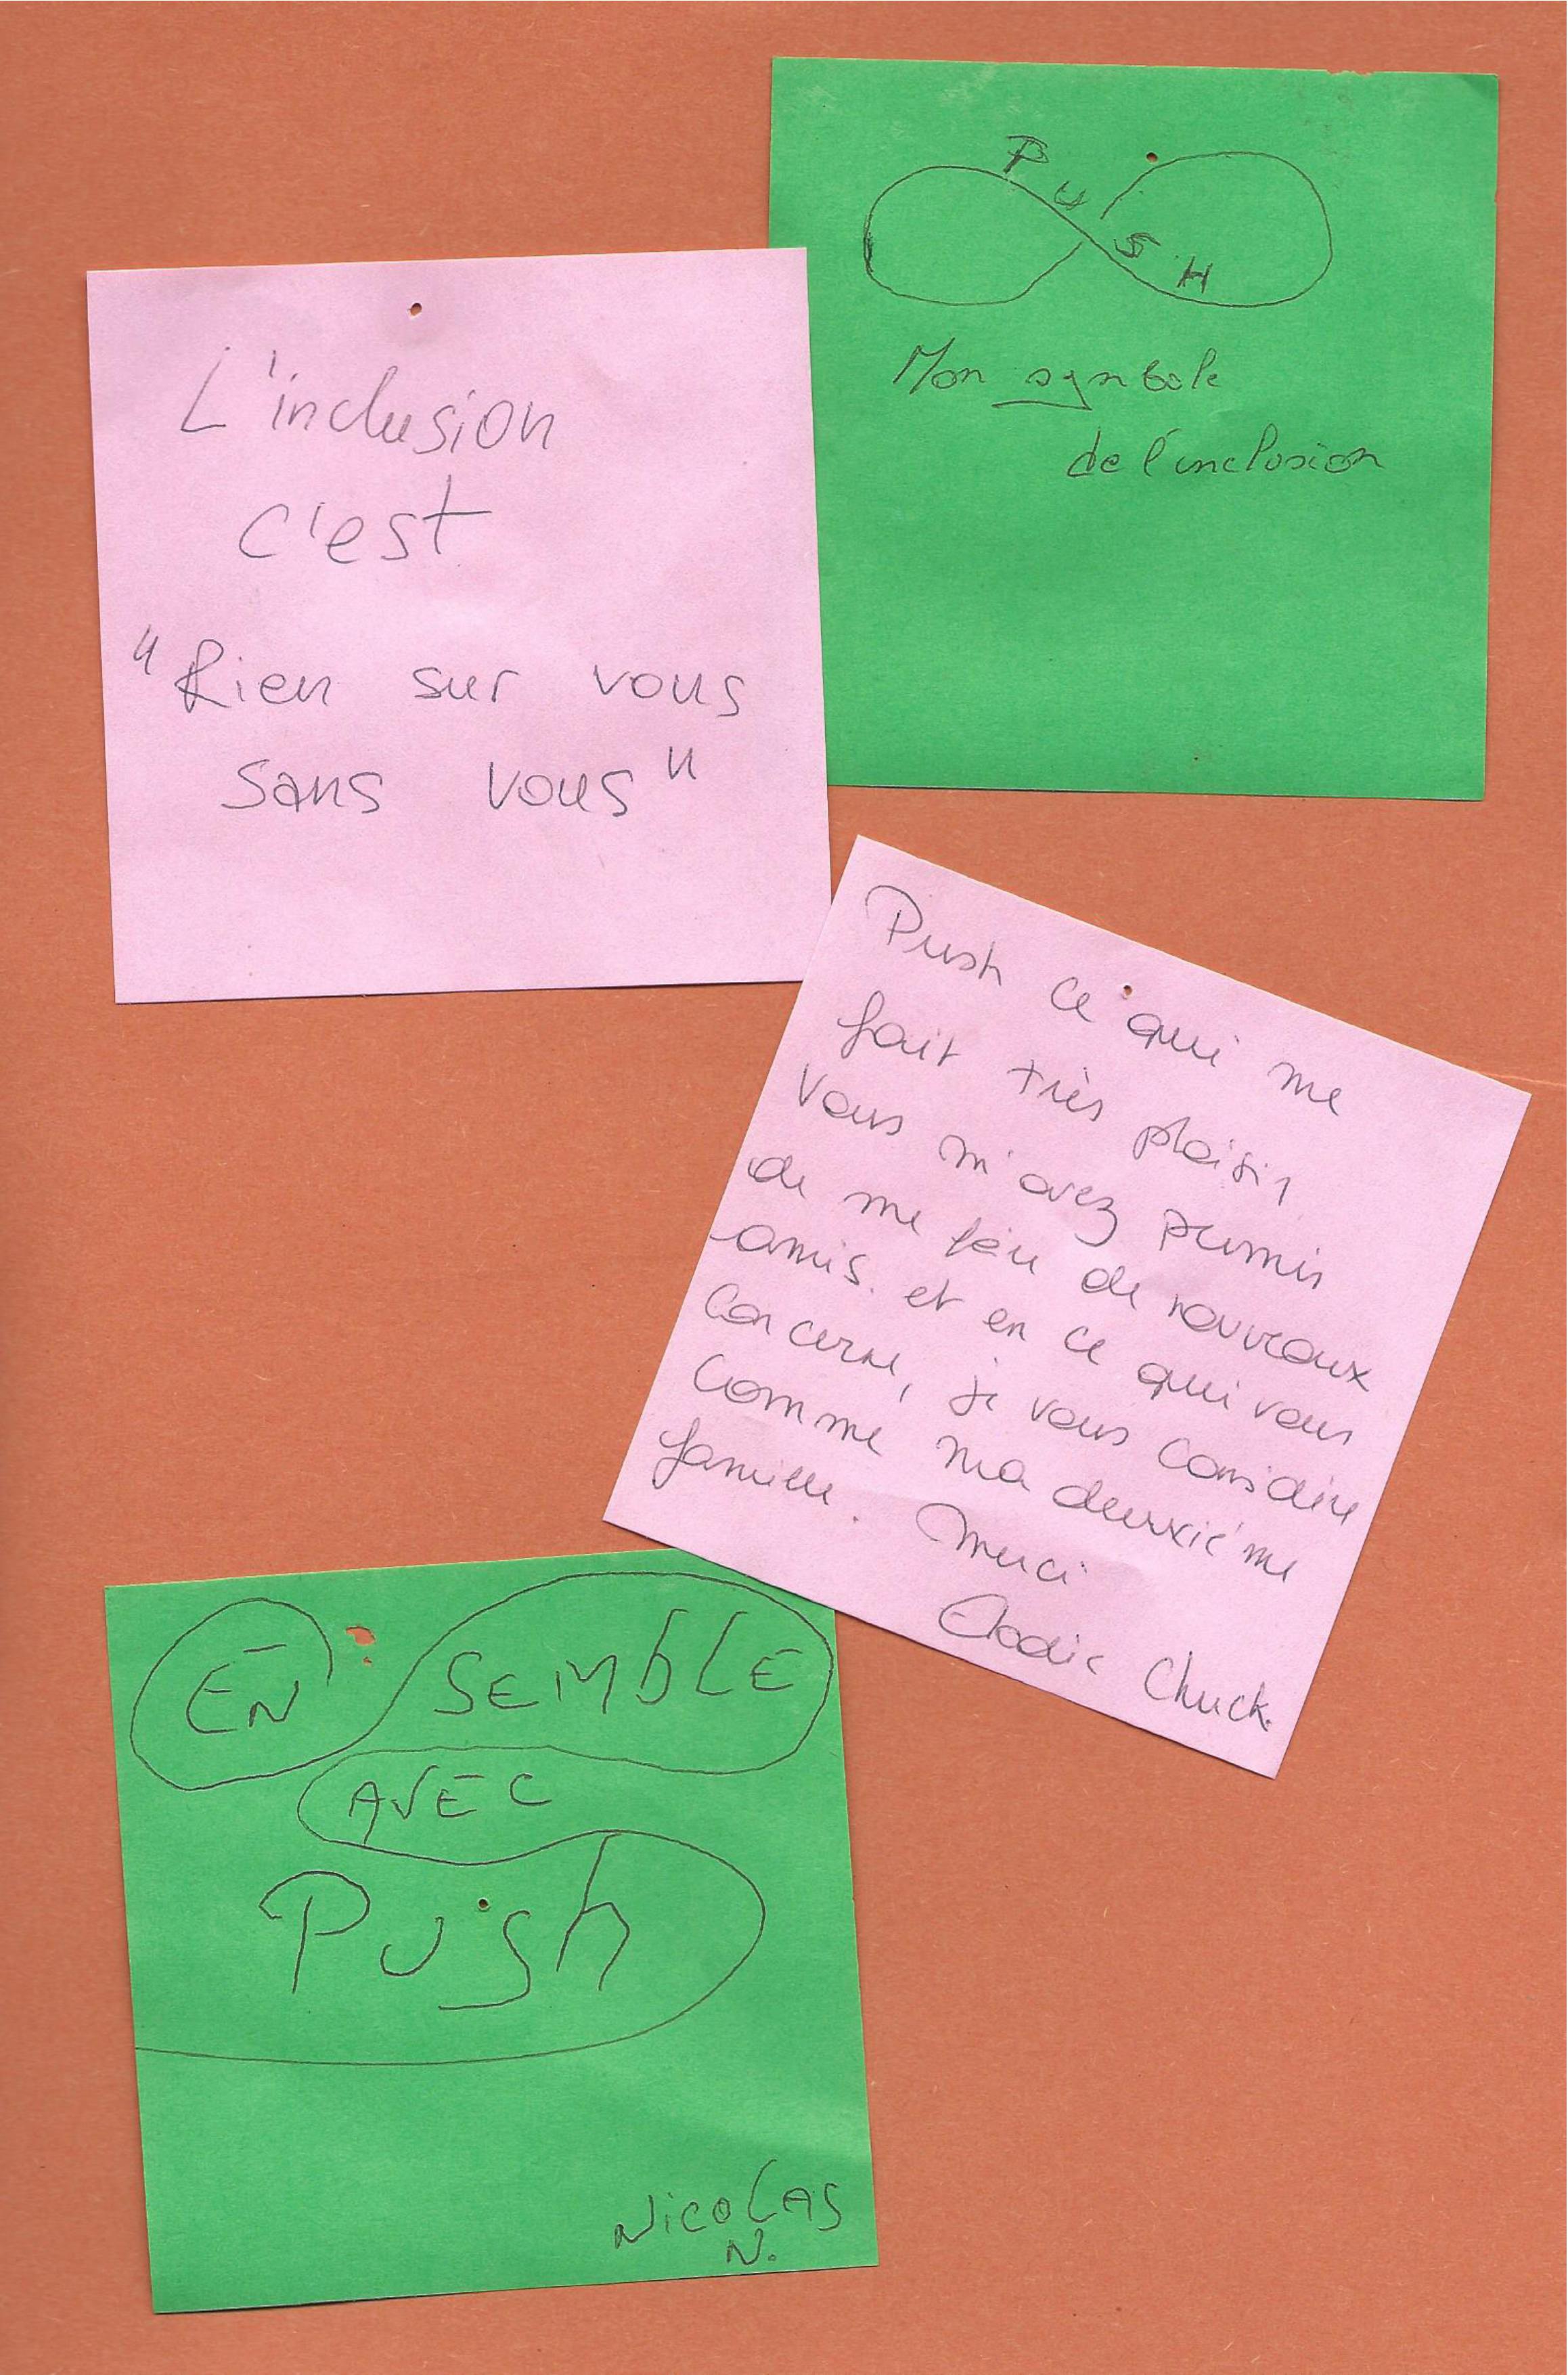 PUSH
Mon symbole
de l'inclusion
L'inclusion
c'est
"Rien sur vous
sans vous"
Push ce qui me
fait très plaisir
Vous m'avez permis
de me faire de nouveaux
amis. et en ce qui vous
concerne, je vous considère
comme ma deuxième
famille. Merci
Elodie Chuck.
EN SEMBLE
AVEC
Push
NicoLAS
N.